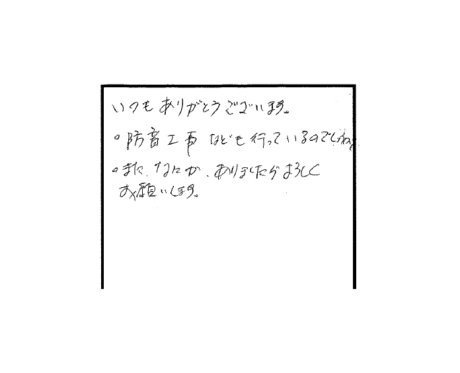 いつもありがとうございます。
。防音工事なども行っているのでしょうか
。また、なにか、ありましたらよろしく
お願いします。